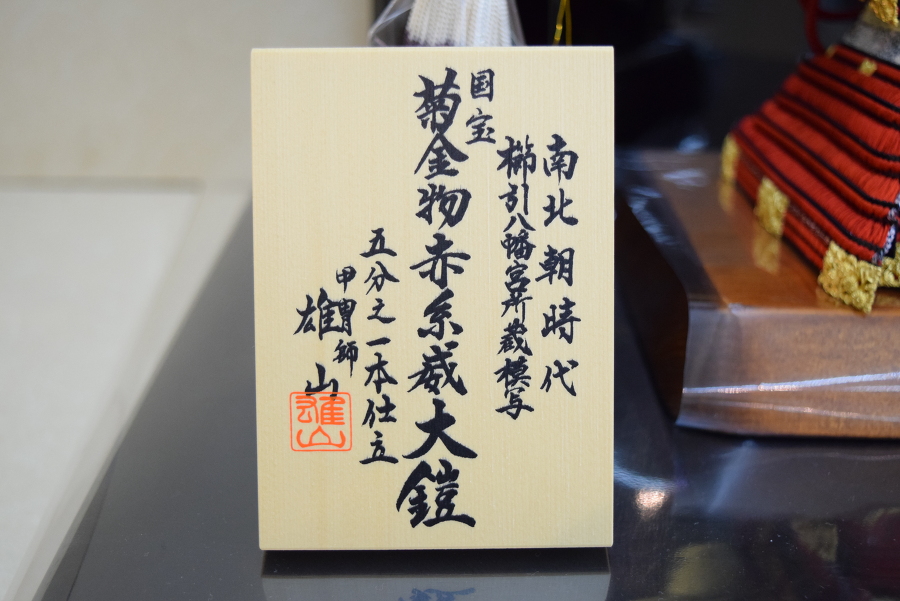 南北朝時代
櫛引八幡宮所蔵模写
国宝
菊金物赤糸威大鎧
五分之一本仕立
甲冑師
雄山
雄山